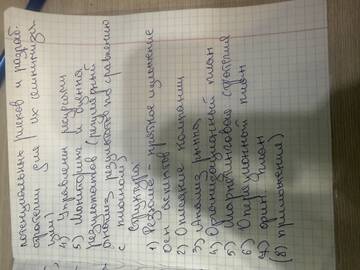 потенциальных рисков и разраб.
стратегии для их минимиза
ции)
4) Управлении ресурсами
5) Мониторинг и оценка
результатов (регулярный
анализ результатов по сравнению
с планом)
Структура
1) Резюме - краткое изложение
осн аспектов
2) Описание компании
3) Анализ рынка
4) Организационный план
5) Маркетинговая стратегия
6) Операционный план
7) фин план
(8) приложения)